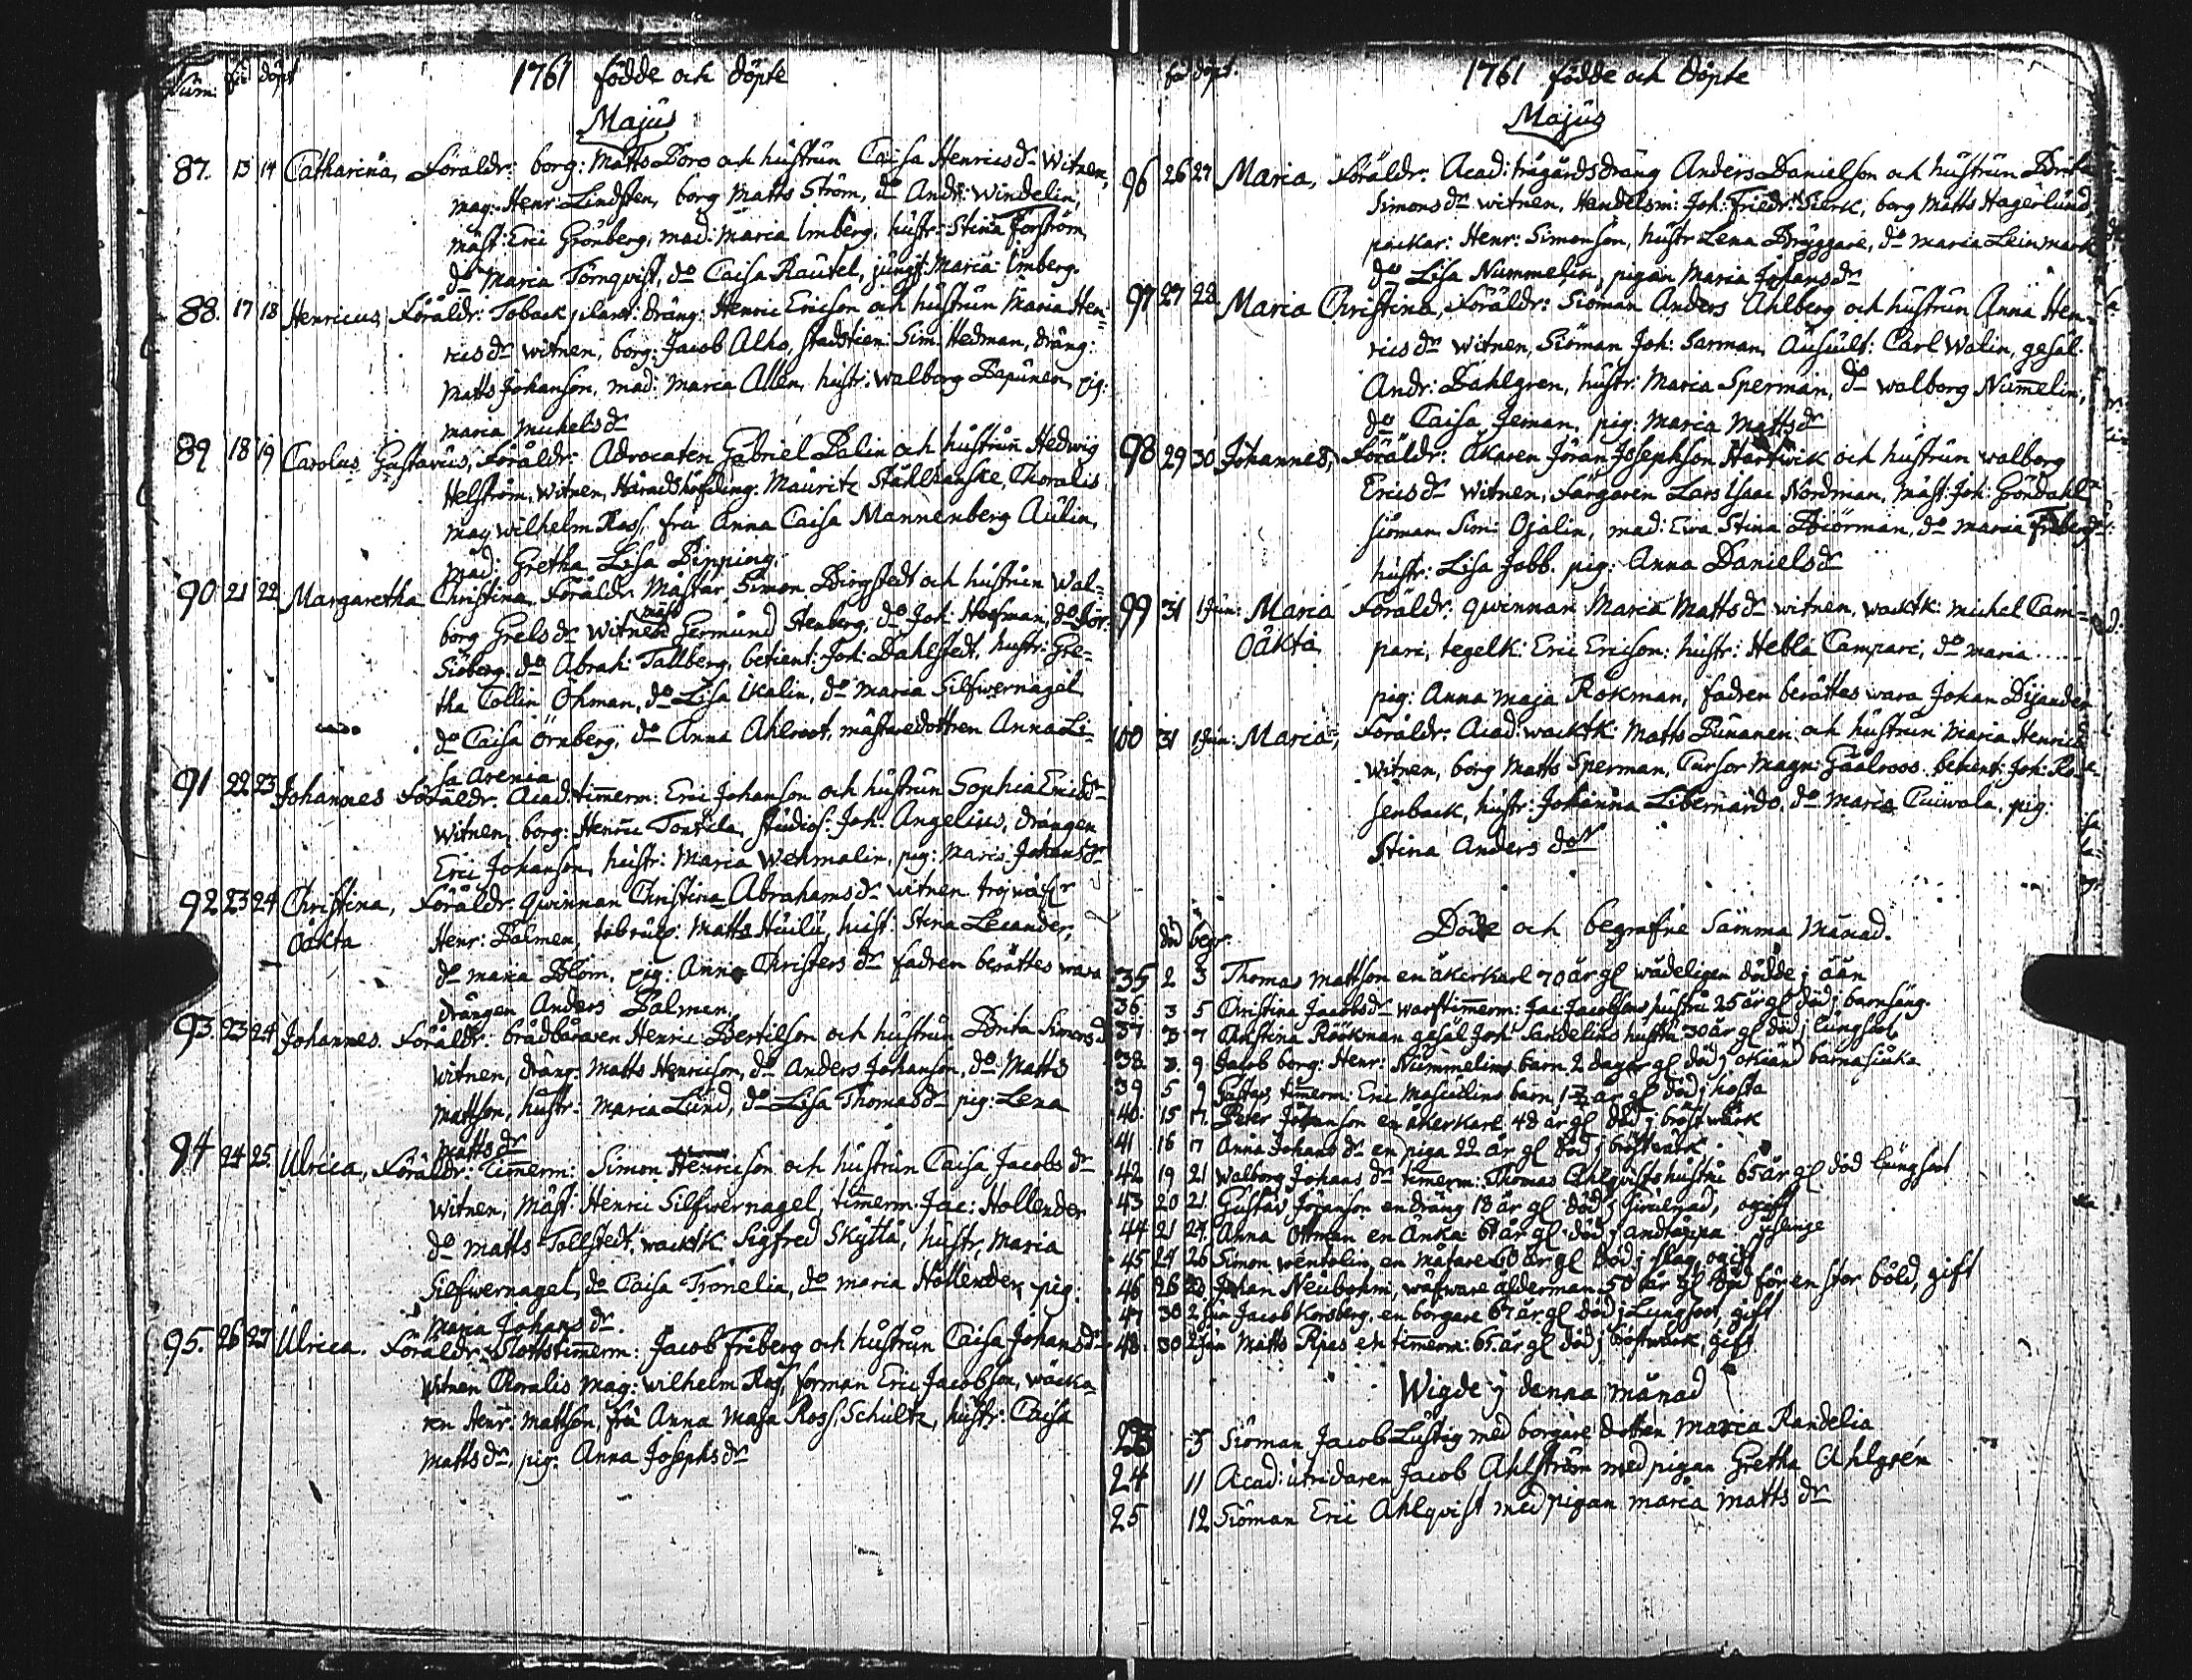 Num: föd döpt 1761 födde och döpte
Majus
87. 13 14 Catharina, Föräldr: borg: Matts Boro och hustrun Caisa Henricsdr Witnen,
mag: Henr: Lindsten, borg Matts Ström, do Andr: Windelin,
mäst: Eric Grönberg, mad: Maria Imberg, hustr: Stina Forström,
do Maria Törnqvist, do Caisa Rautel, jungf: Maria Imberg.
88. 17 18 Henricus, Föräldr: Toback plant: dräng: Henric Ericson och hustrun Maria Hen=
ricsdr witnen, borg: Jacob Alho, stadstien: Sim: Hedman, dräng:
Matts Johanson, mad: Maria Allen, hustr: walborg Papunen, pig:
Maria Michelsdr
89 18 19 Carolus Gustavus, Föräldr: Advocaten Gabriel Palin och hustrun Hedwig
Helström, Witnen, Häradshöfding: Mauritz Stålhanske, Choralis
Mag wilhelm Ross, fru Anna Caisa Mannenberg Aulin,
mad: Gretha Lisa Pipping.
90 21 22 Margaretha Christina Föräldr. Mästar Simon Biorgstedt och hustrun Wal=
borg Grelsdr Witnen mäst Germund Stenberg, do Joh: Hoofman, do Jör:
Siöberg, do Abrah: Tallberg, betient: Joh: Dahlstedt, hustr: Gre=
tha Collin Öhman, do Lisa Ikalin, do Maria Silfwernagel
do Caisa Örnberg, do Anna Ahlroot, mästaredottren Anna Li=
sa Arenia
91 22 23 Johannes Föräldr. Acad: timerm: Eric Johanson och hustrun Sophia Ericsdr
Witnen, borg: Henric Tontila, studios: Joh: Angelius, drängen
Eric Johanson, hustr: Maria Wehmalin, pig: Maria Johansdr
92 23 24 Christina, Föräldr. qwinnan Christina Abrahamsdr witnen
Oäkta Henr: Palmen, Matts Huilu, hust: Stina Lecander,
do Maria Blom, pig: Anna Christersdr fadren berättes wara
drängen Anders Palmen,
93. 23 24 Johannes. Föräldr: brådbäraren Henric Bertilson och hustrun Brita Simonsd
Witnen, dräng: Matts Henricson, do Anders Johanson, do Matts
Mattson, hustr: Maria Lund, do Lisa Thomasdr pig: Lena
Mattsdr
94 24 25. Ulrica, Föräldr: Timerm: Simon Henricson och hustrun Caisa Jacobsdr
Witnen, Mäst: Henric Silfwernagel, timerm Jac: Hollender
do Matts Tollstedt, wacktk. Sigfred Skyttä, hustr, Maria
Silfwernagel, do Caisa Tronelia, do Maria Hollender, pig:
Maria Johansdr.
95. 26 27 Ulrica. Föräldr Slottstimerm: Jacob Friberg och hustrun Caisa Johansdr
Witnen Choralis Mag: Wilhelm Ross, forman Eric Jacobson,
Henr: Mattson, fru Anna Maja Ross Schultz, hustr: Caisa
Mattsdr, pig: Anna Josephsdr
föd döpt. 1761 födde och döpte
Majus
96 26 27 Maria, Föräldr: Acad: trägårdsdräng Anders Danielson och hustrun Brita
Simonsdr Witnen, Handelsm: Joh: Friedr: Sierk, borg Matts Hagerlund,
packar: Henr: Simonson, hustr Lena Bryggare, do Maria Leinmark
do Lisa Nummelin, pigan Maria Johansdr
97 27 28 Maria Christina, Föräldr: Siöman Anders Ahlberg och hustrun Anna Hen=
ricsdr Witnen, Siöman Joh: Sarman, Auscult: Carl Walin, gesäl.
Andr: Dahlgren, hustr: Maria Sperman, do Walborg Numelin,
do Caisa Jeman, pig: Maria Mattsdr
98 29 30 Johannes, Föräldr: Åkaren Jöran Josephson Hartwik och hustrun walborg
Ericsdr Witnen, Färgaren Lars Isaac Nordman, mäst: Joh: Gröndahl
siöman Sim: Ojalin, mad: Ewa Stina Biörman, do Maria Friberg
hustr: Lisa Jobb. pig: Anna Danielsdr
99 31 1 Jun: Maria Föräldr. qwinnan Maria Mattsdr witnen, wacktk: Michel Cam=
Oäkta pari, tegelk: Eric Ericson: hustr: Hebla Campari, do Maria .....
pig: Anna Maja Rökman, fadren berättes wara Johan Dijander
100 31 1 Jun: Maria, Föräldr: Acad: wacktk: Matts Punanen och hustrun Maria Henrics
Witnen, borg Matts Sperman, Cursor Magn: Gaalroos, betient: Joh: Ro=
senback, hustr: Johanna Libernardo, do Maria Cuiwala, pig:
Stina Andersdr
död begr. Döde och begrafne Samma Månad.
35 2 3 Thomas Mattson en åkerkarl 70 år gl wådeligen dödde j åån
36. 3 5 Christina Jacobsdr warftimerm: Jac: Jacobsons hustru 25 år gl död j barnsäng.
37 3 7 Christina Röökman gesäl Joh: Sandelins hustru 30 år gl död j lungsoot
38. 3. 9. Jacob borg: Henr: Nummelins barn 2 dagar gl död j okiänd barnasiuka
39 5 9 Gustaf, timerm: Eric Masculins barn 1 1/2 år gl död j hosta
40. 15 17. Peter Johanson en åkerkarl 48 år gl död j bröstwärk
41 16 17 Anna Johansdr en piga 22 år gl död j bröstwärk
42 19 21 Walborg Johansdr timerm: Thomas Ahlqvists hustru 65 år gl död lungsoot
43 20 21. Gustav Jöranson en dräng 18 år gl död j ogift
44 21 24. Anna Ottman en Änka 61 år gl död j andtäppa
45 24 26 Simon Wentolin, en mätare 60 år gl död j slag, ogift
46 26 Johan Neubohm, wäfware ålderman 50 år gl död för en stor böld, gift
47 30 2 Jun Jacob Korsberg, en borgare 67 år gl död j Lungsoot, gift
48. 30 2 Jun Matts Ripas en timerm: 65. år gl död j böstwärk, gift
Wigde j denna månad
23 5 Siöman Jacob Lustig med borgare dottren Maria Randelia
24 11 Acad: utridaren Jacob Ahlström med pigan Gretha Ahlgrén
25 12 Siöman Eric Ahlqvist med pigan Maria Mattsdr